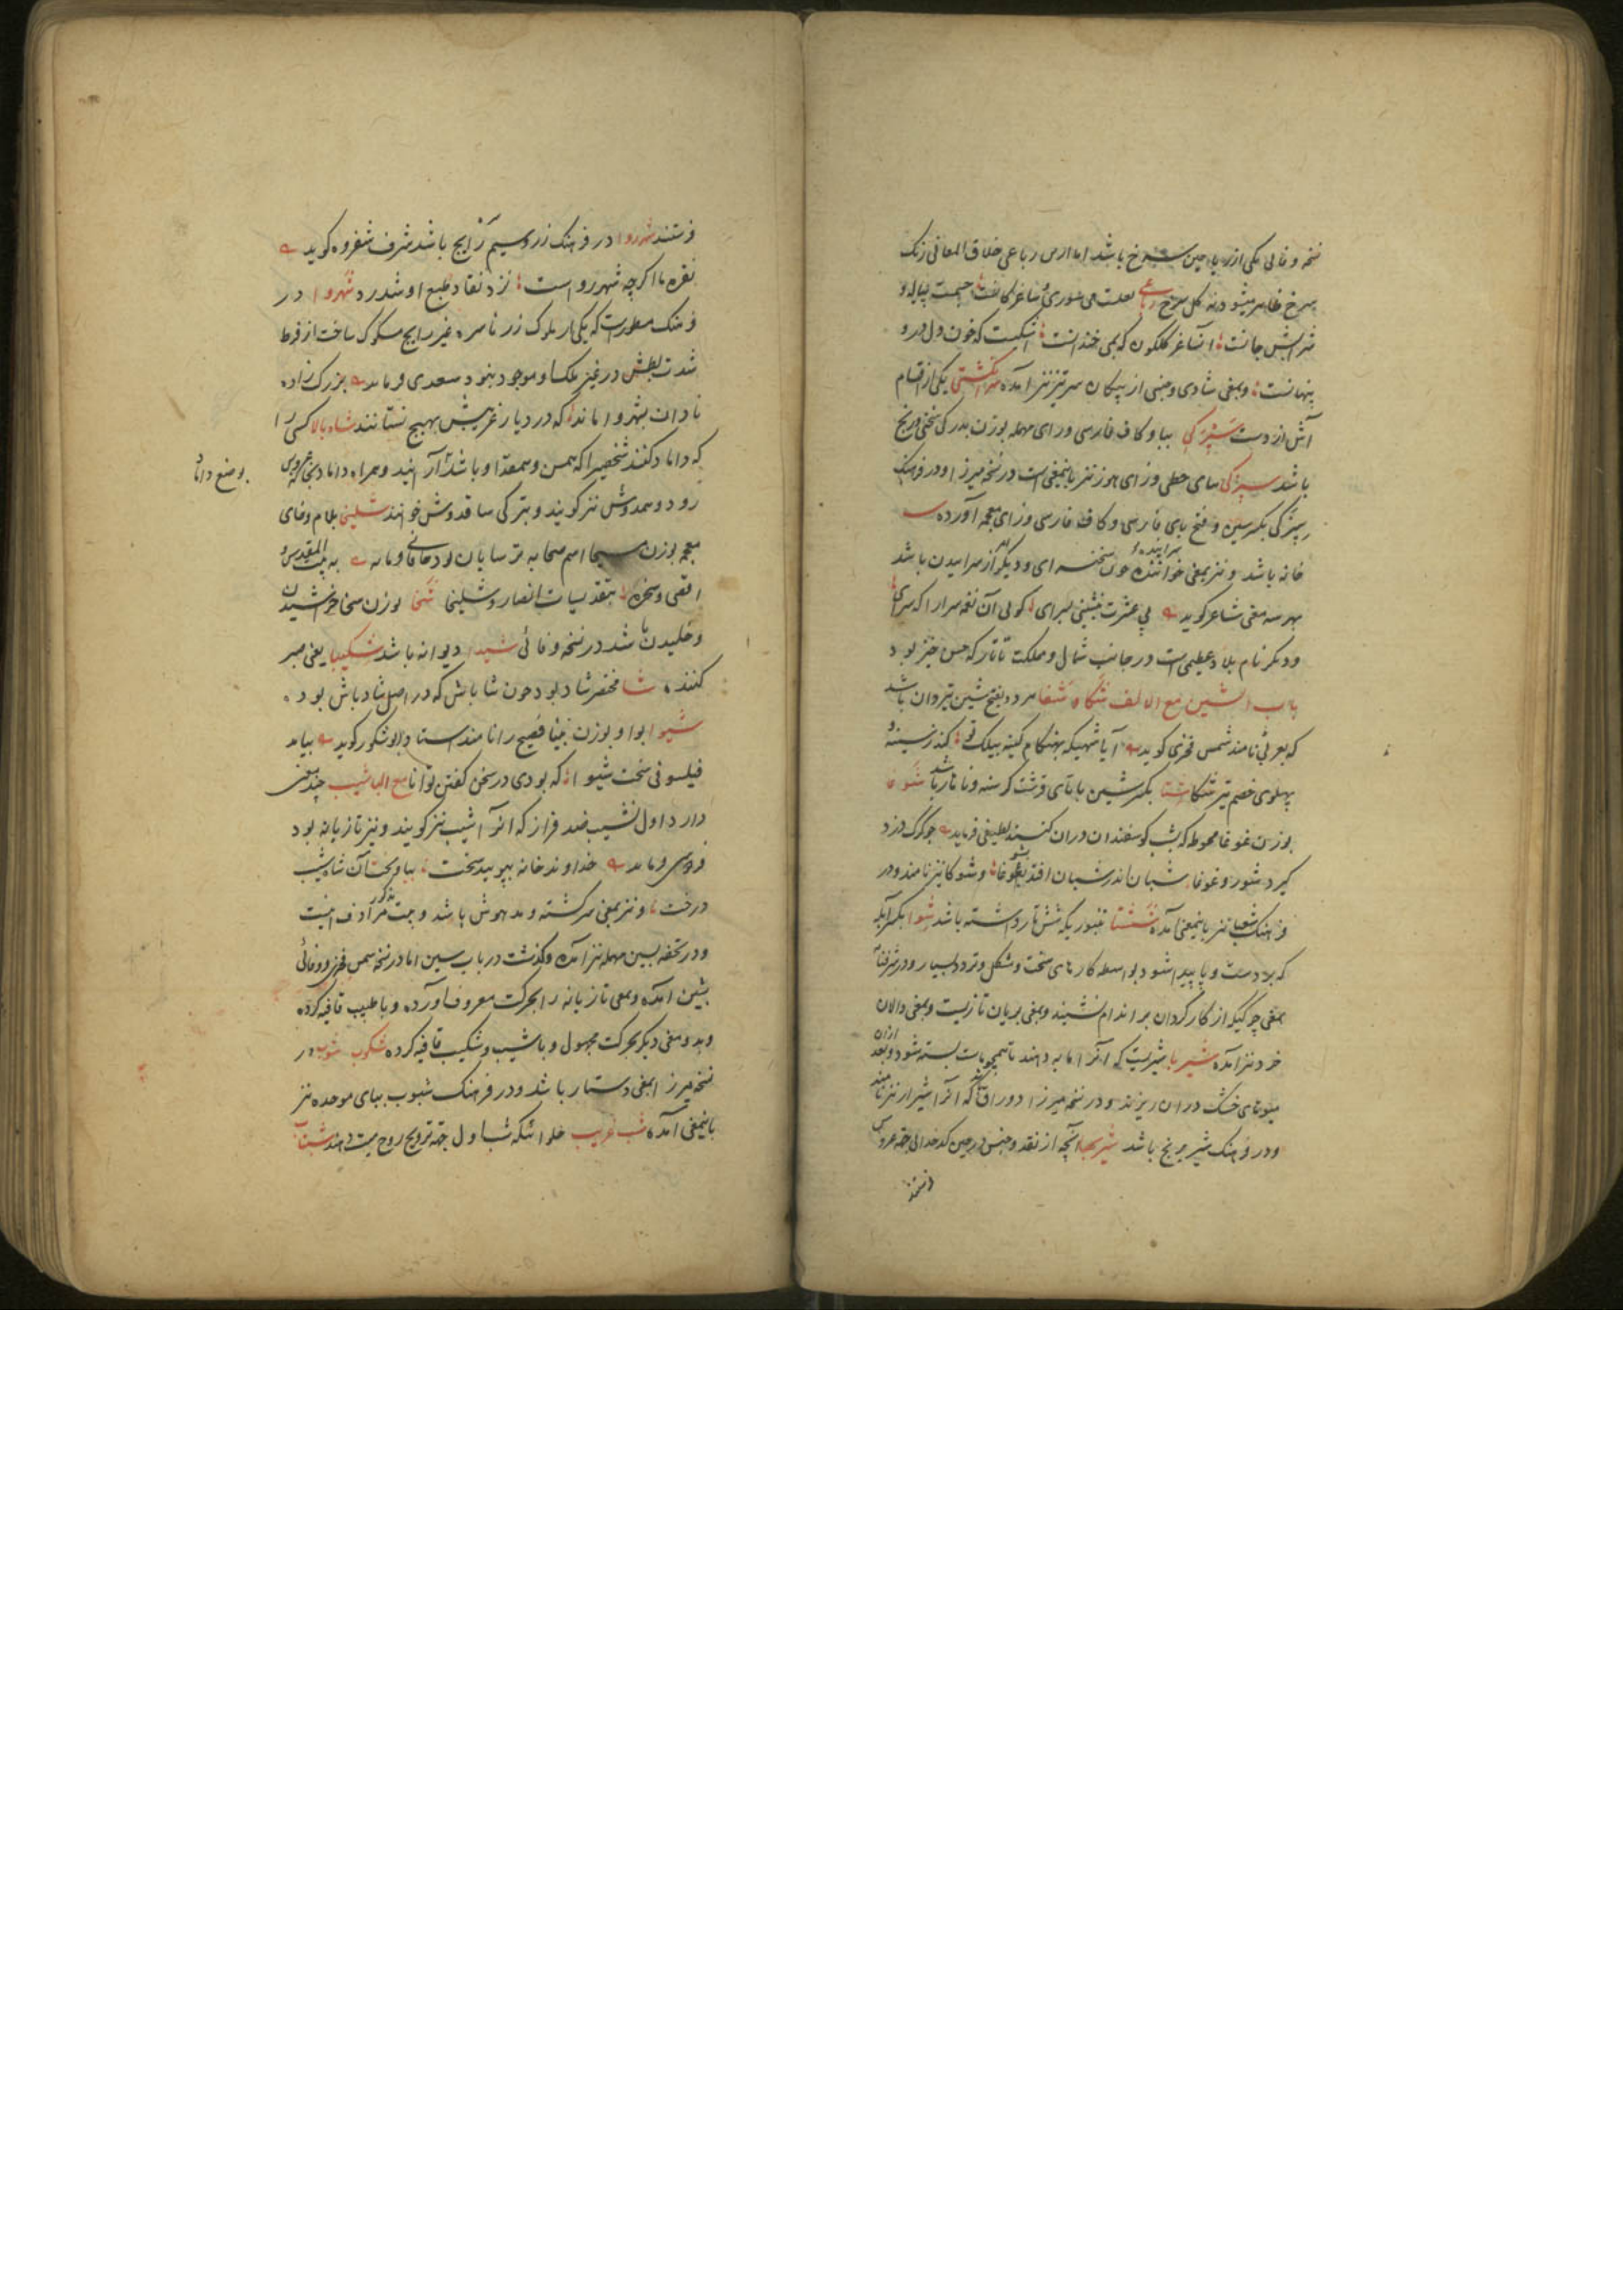 نسخه وفائی یکی از ریاحین سرخ باشد اما ازین رباعی خلاق المعانی رنک
سرخ ظاهر میشود نه کل سرخ رباعی
شرابش جانست آن ساغر کلکون که بمی خندانست اشکیست که خون دل درو
پنهانست و بمعنی شادی و جنسی از پیکان سرتیز نیز آمده یکی از اقسام
آش از دست ببا و کاف فارسی و رای مهمله بوزن بدرکی سختی و رنج
باشد سیزکی بیای حطی و زای هوز نیز باینمعنی است در نسخه میرزا و در فرهنک
سپزکی بکسر سین و فتح بای فارسی و کاف فارسی و زای معجمه آورده
خانه باشد و نیز بمعنی خواننده سراینده چون سخن سرای و دیکر امر از سراییدن باشد
بهر سه معنی شاعر کوید پی عشرت نشینی در سرای کو بی آن نغمه سرا را که سرای
و دیکر نام بلاد عظیمی است در جانب شمال و مملکت تاتار که حسن خیز بود
باب الشین مع الالف شکا و شغا هر دو بفتح شین تیردان باشد
که بعربی نامند شمس فخری کوید آیا شهیکه بهنکام کینه بیلک تو کند ز سینه و
پهلوی خصم تیر شکا شتا بکسر شین با تای قرشت کرسنه و ناهار باشد شوغا
بوزن غوغا محوطه که شب کوسفندان در آن کنند لطیفی فرماید چو کرک دزد
کیرد شور و غوغا شبان اندر شبان افتد بشوغا و شوکا نیز نامند و در
فرهنک شعبا نیز باینمعنی آمده ششتا تنبوریکه شش تار داشته باشد شوا بکسر آبله
که بر دست و پا پیدا شود بواسطه کارهای سخت و مشکل و تردد بسیار و در شرفنامه
بمعنی چرکیکه از کار کردن بر اندام نشیند و بمعنی بریان تازیست و بمعنی دالان
خرد نیز آمده شیربا شیریست که آنرا مایه دهند تا همچو ماست بسته شود و بعد ازان
میوهای خشک دران ریزند و در نسخه میرزا دوراقکه آنرا شیراز نیز نامند
و در فرهنک شیر برنج باشد شیربها آنچه از نقد و جنس در حین کدخدائی بخانه عروس
فرستند
فرستند شهروا در فرهنک زر و سیم رایج باشد شرف شفروه کوید
نقره ما اکرچه شهرروا است نزد نقاد طبع او شد رد شهروا در
فرهنک مسطورست که یکی از ملوک زر ناسره غیر رایج مسکوک ساخت از فرط
شدت بطش در غیر ملک او موجود نبود سعدی فرماید بزرک زاده
نادان بشهروا ماند که در دیار غریبش بهیچ نستانند شاه بالا کسی را
که داماد کنند شخصی را که همسن و همقد او باشد آرایند و همراه داماد بخانه عروس
بوضع داماد
رود و همدوش نیز کویند و بترکی ساقدوش خوانند شلیخا بلام و خای
معجمه بوزن مسیحا اسم صحابه ترسایان بود خاقانی فرماید به بیت المقدس و
اقصی و صخره بتقدیسات انصار و شلیخا شخا بوزن سخا خراشیدن
و خلیدن باشد در نسخه وفائی شیدا دیوانه باشد شکیبا یعنی صبر
کننده شا مختصر شاد بود چون شاباش که در اصل شاد باش بود
شیوا بواو بوزن بینا فصیح را نامند استاد ابوشکور کوید بیامد
فیلسوفی سخت شیوا که بودی در سخن کفتن توانا مع البا شیب چند معنی
دارد اول نشیب ضد فراز که آنرا شیب نیز کویند و نیز تازیانه بود
فردوسی فرماید خداوند خانه بپویید سخت بیاویخت آن شاه شیب
درخت و نیز بمعنی سرکشته و مدهوش باشد و جهت مذکور مرادف اینست
و در تحفه بسین مهمله نیز آمده و کذشت در باب سین اما در نسخه شمس فخری و وفائی
بشین آمده و بمعنی تازیانه را بحرکت معروف آورده و با طبیب قافیه کرده
و بدو معنی دیکر بحرکت مجهول و باشیب و شکیب قافیه کرده شکوب شوب در
نسخه میرزا بمعنی دستار باشد و در فرهنک شبوب ببای موحده نیز
باینمعنی آمده شب غریب حلوائیکه شب اول جهة ترویح روح میت دهند شتاب